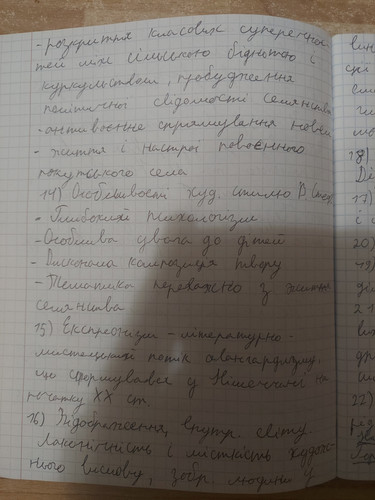 - розкриття класових супереч
тей між сільською біднотою і
куркульством, пробудження
політичної свідомості селянства
- антивоєнне спрямування новел
- життя і настрої повоєнного
покутського села
14) Особливості худ. стилю В. Стеф
- Глибокий психологізм
- Особлива увага до дітей
- Виконана композиція твору
- Тематика переважно з життя
селянства
15) Експресіонізм - літературно-
мистецький потік авангардизму,
що сформувався у Німеччині на
початку XX ст.
16) Зображення внутр. світу.
Лаконічність і місткість художн
нього вислову, зобр. людини у
він
ці
сли
чи
18)
Ді
17)
і
20)
19)
ді
21
22)
різ